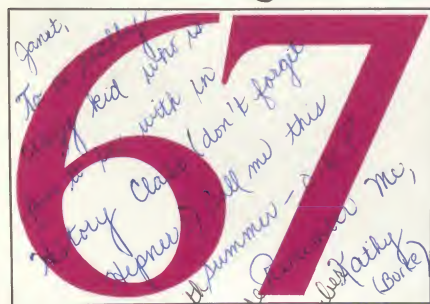 67
Janet,
To a really
kid who is
with in
History Class (don't forget
Hepner) Call me this
summer -
Remember Me,
Kathy
(Borke)